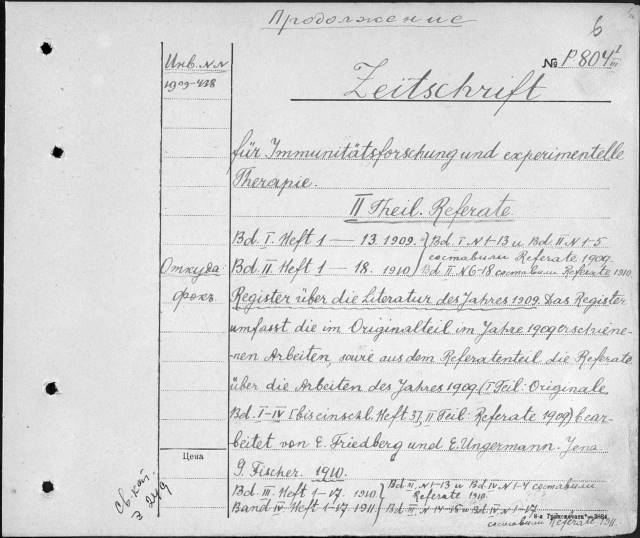 Продолжение
6
№ P 804 I/III
Инв. NN
1909-438
Zeitschrift
für Immunitätsforschung und experimentelle
Therapie.
II Theil. Referate
Bd. I. Heft 1 — 13. 1909. } Bd. I N 1-13 и Bd II N 1-5
составили Referate 1909.
Bd. II. Heft 1 — 18. 1910 } Bd. II N 6-18 составили Referate 1910.
Откуда:
фокъ
Register über die Literatur des Jahres 1909. Das Register
umfasst die im Originalteil im Jahre 1909 erschiene-
nen Arbeiten, sowie aus dem Referatenteil die Referate
über die Arbeiten des Jahres 1909. (I Teil: Originale
Bd. I-IV [bis einschl. Heft 3], II Teil: Referate 1909) bear-
beitet von E. Friedberg und E. Ungermann. Jena
Цена
G. Fischer. 1910.
Bd. III. Heft 1-17. 1910. } Bd III N 1-13 и Bd IV N 1-4 составили
Referate 1910.
Band IV Heft 1-17. 1911. } Bd III N 14-16 и Bd IV N 1-17
составили Referate 1911.
Св. кат.
э 249